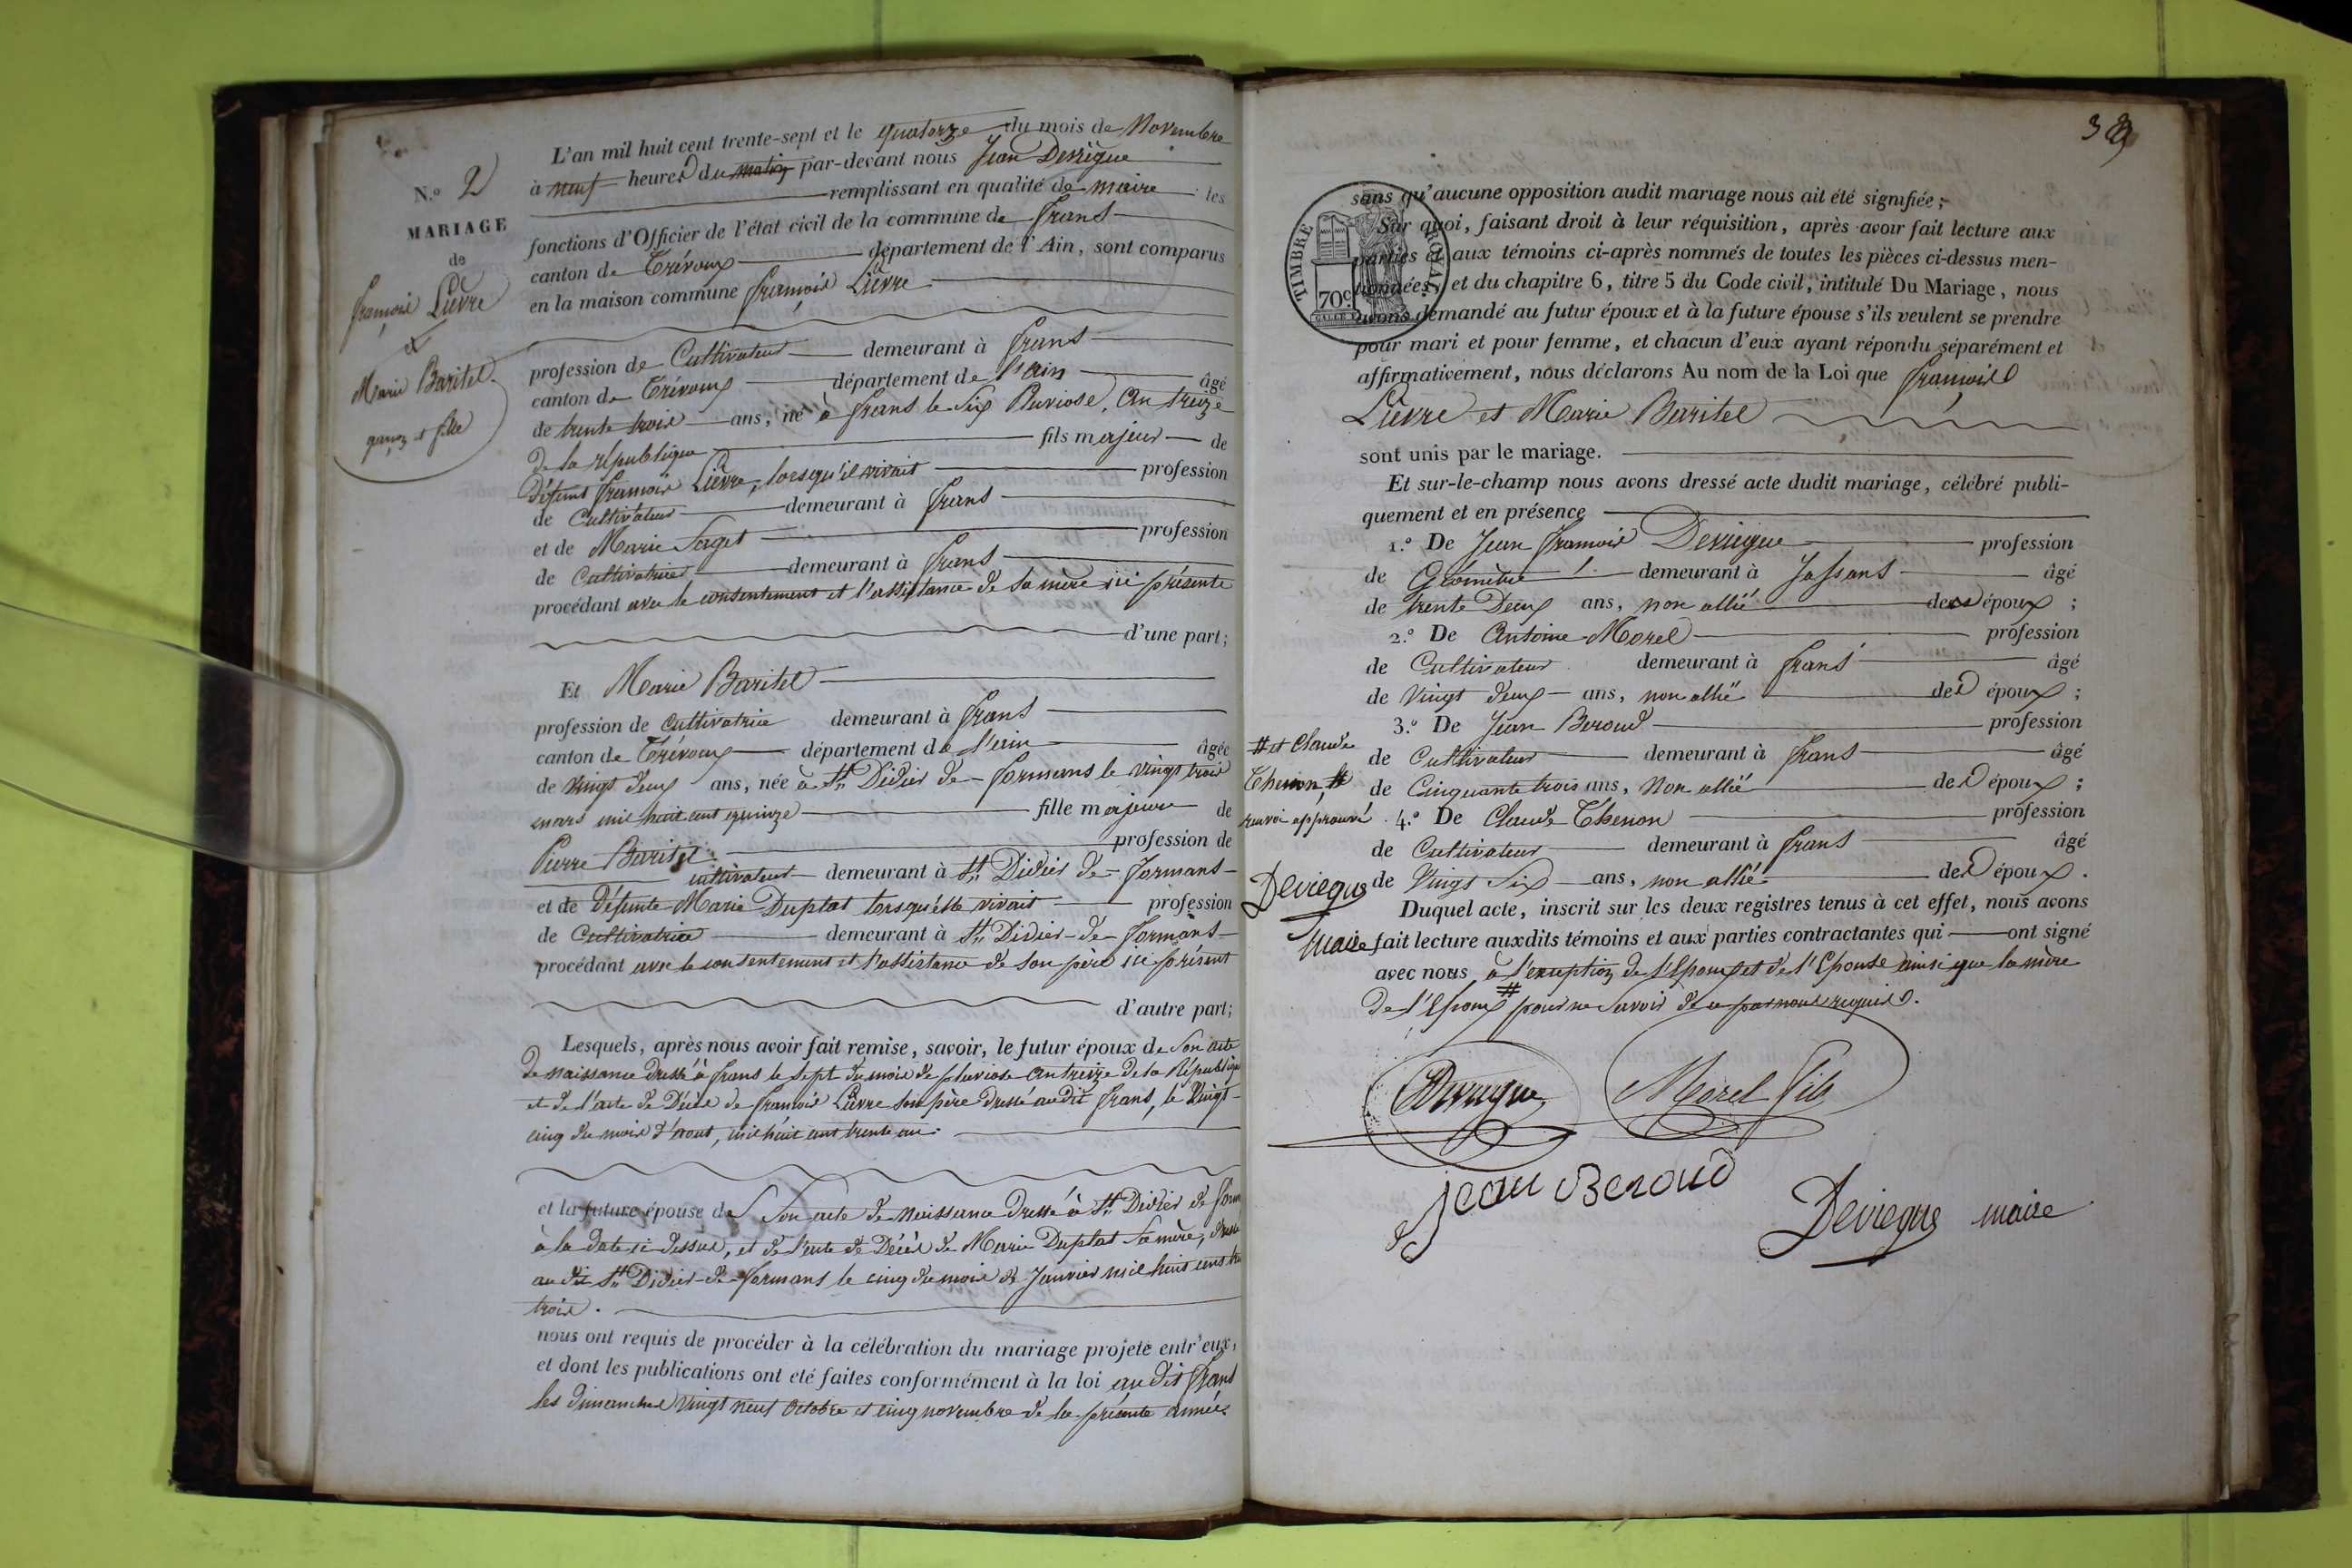 N.o 2
MARIAGE
de
françois Lièvre
et
Marie Baritel
garçon et fille
L'an mil huit cent trente-sept et le quatorze du mois de Novembre
à neuf heures du matin par-devant nous Jean Devièque
remplissant en qualité de maire les
fonctions d'Officier de l'état civil de la commune de frans
canton de Trévoux département de l'Ain, sont comparus
en la maison commune françois Lièvre
profession de Cultivateur demeurant à frans
canton de Trévoux département de l'ain âgé
de trente trois ans, né à frans le six Pluviose, an treize
de la république fils majeur de
défunt françois Lièvre, lorsqu'il vivait profession
de Cultivateur demeurant à frans
et de Marie Saget profession
de Cultivatrice demeurant à frans
procédant avec le consentement et l'assistance de sa mère ici présente
d'une part;
Et Marie Baritel
profession de cultivatrice demeurant à frans
canton de Trévoux département de l'ain âgée
de vingt deux ans, née à St Didier de formans le vingt trois
mars mil huit cent quinze fille majeure de
Pierre Baritel profession de
cultivateur demeurant à St Didier de formans
et de défunte Marie Duplat lorsqu'elle vivait profession
de Cultivatrice demeurant à St Didier de formans
procédant avec le consentement et l'assistance de son père ici présent
d'autre part;
Lesquels, après nous avoir fait remise, savoir, le futur époux de son acte
de naissance dressé à frans le sept du mois de pluviose an treize de la République
et de l'acte de Décès de françois Lièvre son père dressé audit frans, le vingt
cinq du mois d'aout, mil huit cent trente un.
et la future épouse de son acte de naissance dressé à St Didier de form
à la date ci dessus, et de l'acte de Décès de Marie Duplat sa mère, dressé
au dit St Didier de formans le cinq du mois de Janvier mil huit cent
trois.
nous ont requis de procéder à la célébration du mariage projeté entr'eux,
et dont les publications ont été faites conformément à la loi au dit frans
les dimanches vingt neuf octobre et cinq novembre de la présente année
TIMBRE ROYAL
70c
sans qu'aucune opposition audit mariage nous ait été signifiée;
Sur quoi, faisant droit à leur réquisition, après avoir fait lecture aux
parties et aux témoins ci-après nommés de toutes les pièces ci-dessus men-
tionnées, et du chapitre 6, titre 5 du Code civil, intitulé Du Mariage, nous
avons demandé au futur époux et à la future épouse s'ils veulent se prendre
pour mari et pour femme, et chacun d'eux ayant répondu séparément et
affirmativement, nous déclarons Au nom de la Loi que françois
Lièvre et Marie Baritel
sont unis par le mariage.
Et sur-le-champ nous avons dressé acte dudit mariage, célébré publi-
quement et en présence
1.o De Jean françois Devièque profession
de Géomètre demeurant à Jassans âgé
de trente Deux ans, non allié des époux;
2.o De Antoine Morel profession
de Cultivateur demeurant à frans âgé
de vingt deux ans, non allié des époux;
3.o De Jean Beroud profession
de Cultivateur demeurant à frans âgé
de Cinquante trois ans, non allié des époux;
4.o De Claude Thenon profession
de Cultivateur demeurant à frans âgé
de Vingt Six ans, non allié des époux.
Duquel acte, inscrit sur les deux registres tenus à cet effet, nous avons
fait lecture auxdits témoins et aux parties contractantes qui ont signé
avec nous à l'exception de l'Epoux et de l'Epouse ainsi que la mère
de l'Epoux # pour ne savoir de ce par nous requis.
# et Claude
Thenon, #
renvoi approuvé
Devieque
maire
Devieque
Morel fils
Jean Beroud
Devieque maire